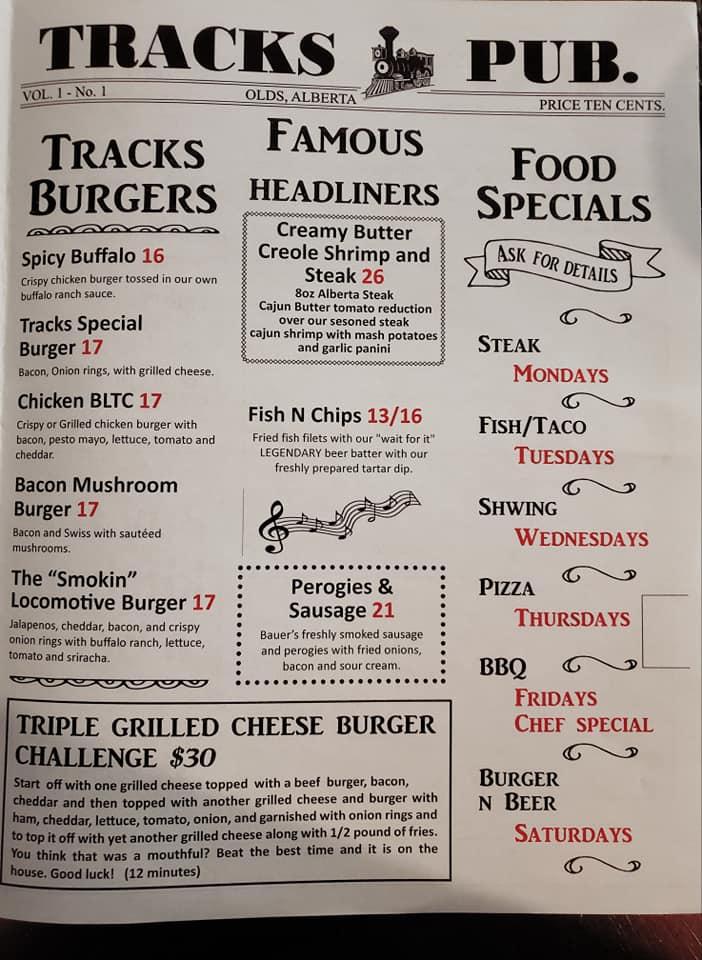 TRACKS PUB.
VOL. 1 - No. 1
OLDS, ALBERTA
PRICE TEN CENTS.
TRACKS
BURGERS
Spicy Buffalo 16
Crispy chicken burger tossed in our own
buffalo ranch sauce.
Tracks Special
Burger 17
Bacon, Onion rings, with grilled cheese.
Chicken BLTC 17
Crispy or Grilled chicken burger with
bacon, pesto mayo, lettuce, tomato and
cheddar.
Bacon Mushroom
Burger 17
Bacon and Swiss with sautéed
mushrooms.
The “Smokin”
Locomotive Burger 17
Jalapenos, cheddar, bacon, and crispy
onion rings with buffalo ranch, lettuce,
tomato and sriracha.
FAMOUS
HEADLINERS
Creamy Butter
Creole Shrimp and
Steak 26
8oz Alberta Steak
Cajun Butter tomato reduction
over our sesoned steak
cajun shrimp with mash potatoes
and garlic panini
Fish N Chips 13/16
Fried fish filets with our "wait for it"
LEGENDARY beer batter with our
freshly prepared tartar dip.
Perogies &
Sausage 21
Bauer’s freshly smoked sausage
and perogies with fried onions,
bacon and sour cream.
FOOD
SPECIALS
ASK FOR DETAILS
STEAK
MONDAYS
FISH/TACO
TUESDAYS
SHWING
WEDNESDAYS
PIZZA
THURSDAYS
BBQ
FRIDAYS
CHEF SPECIAL
BURGER
N BEER
SATURDAYS
TRIPLE GRILLED CHEESE BURGER
CHALLENGE $30
Start off with one grilled cheese topped with a beef burger, bacon,
cheddar and then topped with another grilled cheese and burger with
ham, cheddar, lettuce, tomato, onion, and garnished with onion rings and
to top it off with yet another grilled cheese along with 1/2 pound of fries.
You think that was a mouthful? Beat the best time and it is on the
house. Good luck! (12 minutes)